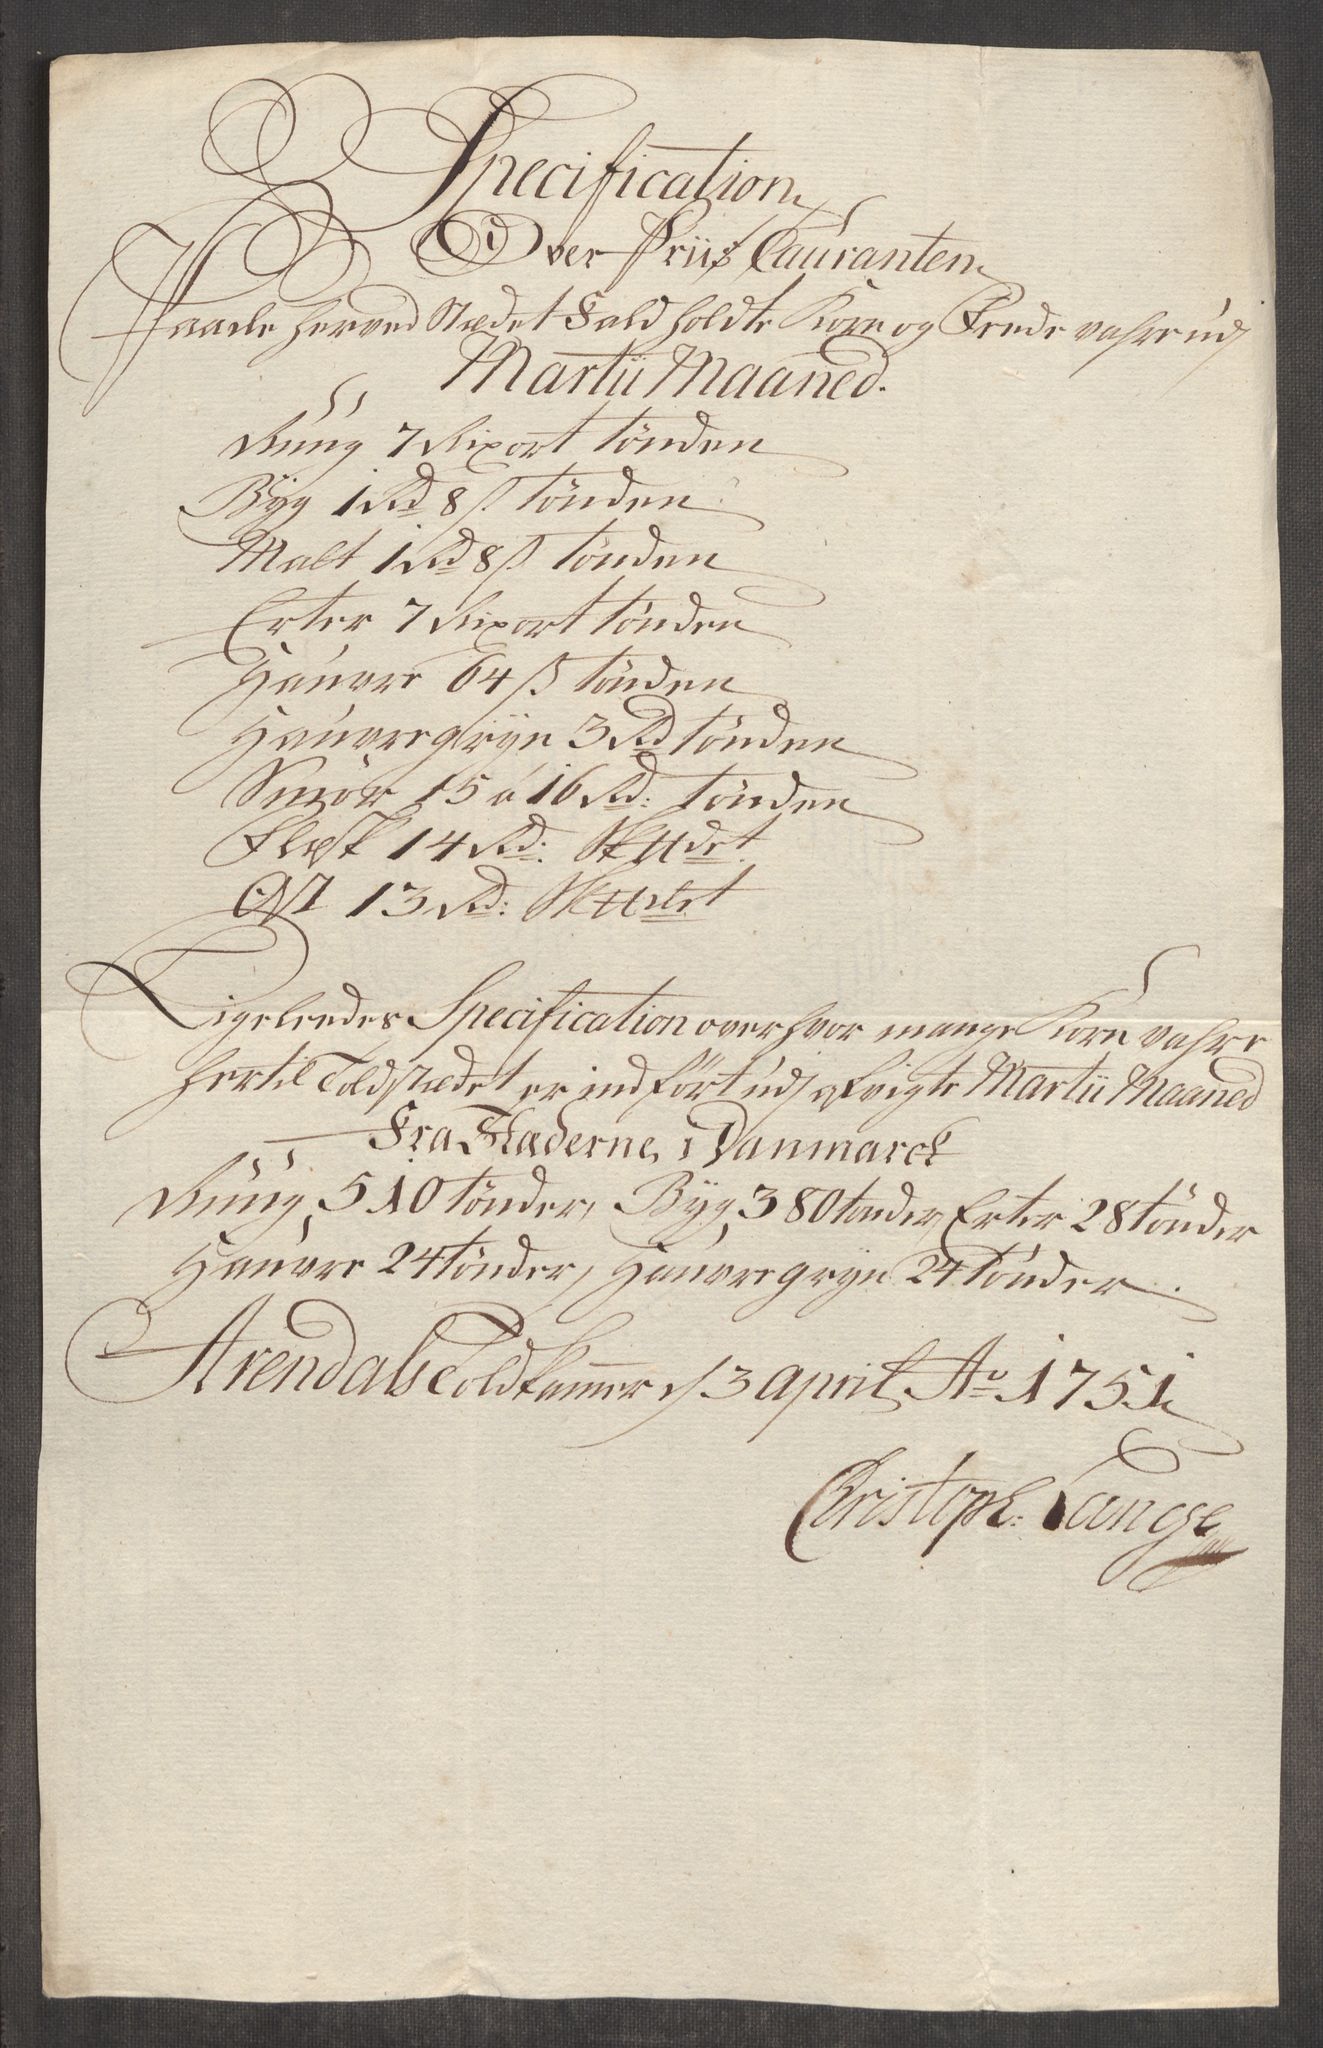 Specification
Over Priis Couranten
Paa de herved Stædet fald holdte Korn og Fede vahre udj
Martii Maaned.
Rüng 7 Rixort tönden
Byg 1 Rd 8 ß tönden
Malt 1 Rd 8 ß tönden
Erter 7 Rixort tönden
Hauvre 64 ß tönden
Hauvregryn 3 Rd tönden
Smör 15 á 16 Rd: tönden
Flesk 14 Rd: Sk℔det
Ost 13 Rd: Sk℔det
Ligeleedes Specification over hvor mange Korn vahre
hertil Toldstædet er indfört udj afvigte Martii Maaned
Fra Stæderne i Danmarck
Rüng 510 tönder, Byg 380 tönder, Erter 28 tönder
Hauvre 24 tönder, Hauvregryn 24 tönder.
Arendals Toldkammer d 3 April Ao. 1751
Christoph: Lange